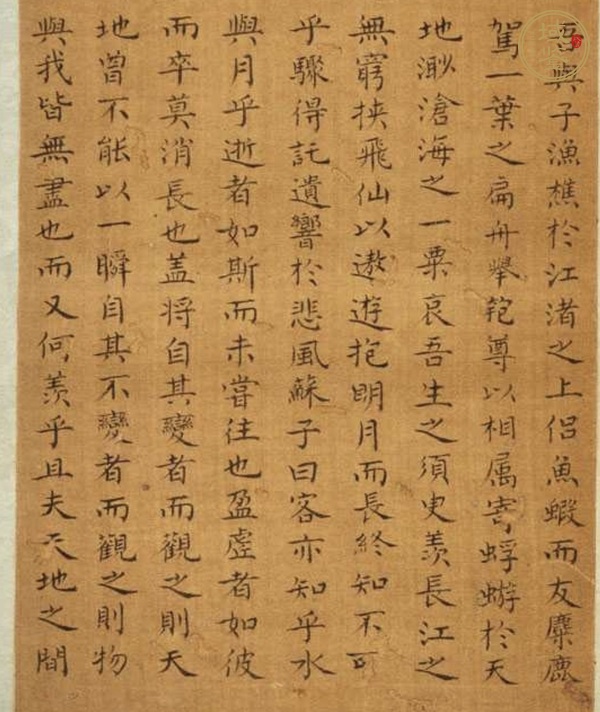 吾與子漁樵於江渚之上侶魚蝦而友麋鹿
駕一葉之扁舟舉匏尊以相属寄蜉蝣於天
地渺滄海之一粟哀吾生之須臾羨長江之
無窮挾飛仙以遨遊抱明月而長終知不可
乎驟得託遺響於悲風蘇子曰客亦知乎水
與月乎逝者如斯而未嘗往也盈虛者如彼
而卒莫消長也盖将自其變者而觀之則天
地曾不能以一瞬自其不變者而觀之則物
與我皆無盡也而又何羨乎且夫天地之間